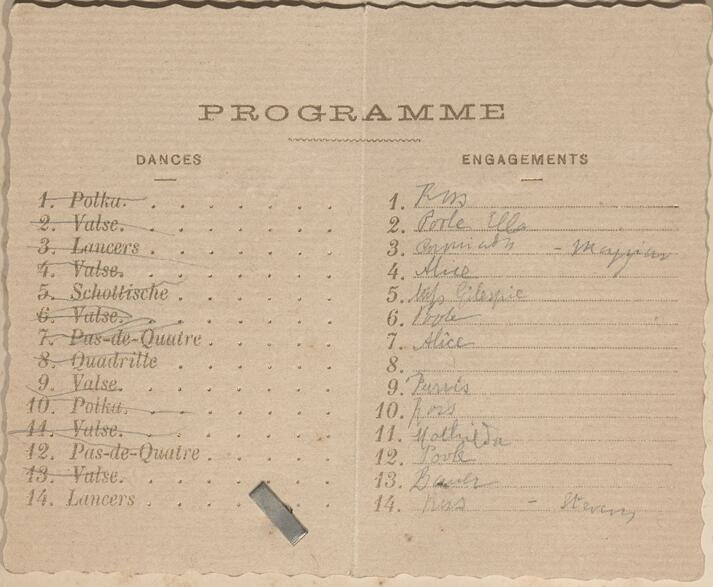 PROGRAMME
DANCES
1. Polka.
2. Valse.
3. Lancers
4. Valse.
5. Schottische
6. Valse.
7. Pas-de-Quatre
8. Quadrille
9. Valse.
10. Polka.
11. Valse.
12. Pas-de-Quatre
13. Valse.
14. Lancers
ENGAGEMENTS
1. Ross
2. Poole Ella
3.
4. Alice
5. Miss Gilespie
6. Poole
7. Alice
8.
9. Purvis
10. Ross
11. Mathilda
12. Poole
13. Bauer
14. Ross - Stevens